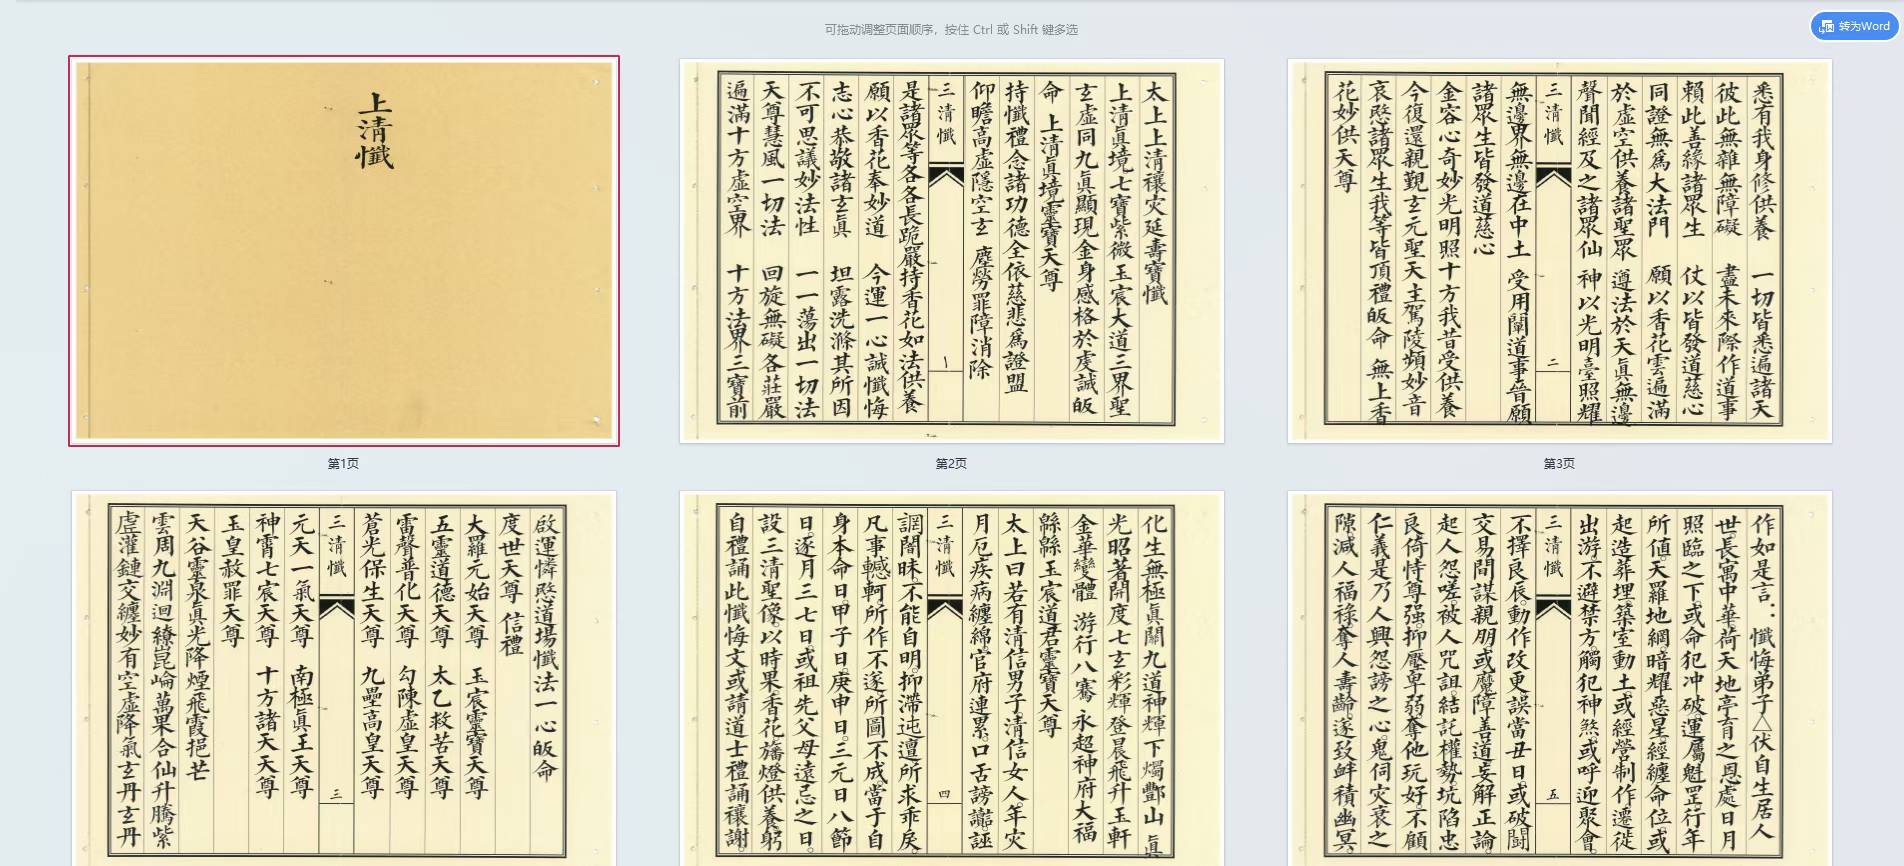 可拖动调整页面顺序，按住 Ctrl 或 Shift 键多选
转为Word
上清懺
太上上清禳灾延壽寶懺
上清眞境七寶紫微 玉宸大道三界聖
玄虛同九眞顯現金身感格於虔誠皈
命 上清眞境靈寶天尊
持懺禮念諸功德全依慈悲爲證盟
仰瞻高虛隱空玄 塵勞罪障消除
三清懺 一
是諸眾等各各長跪嚴持香花如法供養
願以香花奉妙道 今運一心誠懺悔
志心恭敬諸玄眞 坦露洗滌其所因
不可思議妙法性 一一蕩出一切法
天尊慧風一切法 回旋無礙各莊嚴
遍滿十方虛空界 十方法界三寶前
悉有我身修供養 一切皆悉遍諸天
彼此無雜無障礙 盡未來際作道事
賴此善緣諸眾生 仗以皆發道慈心
同證無爲大法門 願以香花雲遍滿
於虛空供養諸聖眾 遵法於天眞無邊
聲聞經及之諸眾仙 神以光明臺照耀
三清懺 二
無邊界無邊在中土 受用闡道事音願
諸眾生皆發道慈心
金容心奇妙光明照十方我昔受供養
今復還親覲玄元聖天主駕陵頻妙音
哀愍諸眾生我等皆頂禮皈命 無上香
花妙供天尊
第1页
第2页
第3页
啟運憐愍道場懺法一心皈命
度世天尊 信禮
大羅元始天尊 玉宸靈寶天尊
五靈道德天尊 太乙救苦天尊
雷聲普化天尊 勾陳虛皇天尊
蒼光保生天尊 九壘高皇天尊
三清懺 三
元天一氣天尊 南極眞王天尊
神霄七宸天尊 十方諸天天尊
玉皇赦罪天尊
天谷靈泉眞光降煙飛霞挹芒
雲周九淵迴繚崑崙萬果合仙升騰紫
虛灌鏈交纏妙有空虛降氣玄丹玄丹
化生無極眞關九道神輝下燭酆山 眞
光昭著開度七玄彩輝登晨飛升玉軒
金華變體 游行八騫 永超神府大福
緜緜玉宸道君靈寶天尊
太上曰若有清信男子清信女人年灾
月厄疾病纏綿。官府連累。口舌謗讟誣
三清懺 四
誷闇昧。不能自明。抑滯迍邅所求乖戾。
凡事轗軻所作不遂所圖不成當于自
身本命日。甲子日。庚申日。三元日八節
日。逐月三七日。或祖先父母遠忌之日。
設三清聖像。以時果香花。旛燈供養。躬
自禮誦此懺悔文或請道士禮誦禳謝。
作如是言： 懺悔弟子△伏自生居人
世。長寓中華。荷天地亭育之恩。處日月
照臨之下或命犯冲破運屬魁罡。行年
所值天羅地網。暗耀惡星。經纏命位。或
起造葬埋築室動土或經營制作遷徙
出游。不避禁方。觸犯神煞或呼迎聚會。
三清懺 五
不擇良辰。動作改更誤當丑日或破鬪
交易問謀親朋或魔障善道妄解正論
起人怨嗟被人咒詛。結託權勢坑陷忠
良倚恃尊强抑壓卑弱。奪他玩好。不顧
仁義是乃人興怨謗之心。鬼伺灾衰之
隙減人福祿。奪人壽齡。遂致衅積幽冥。